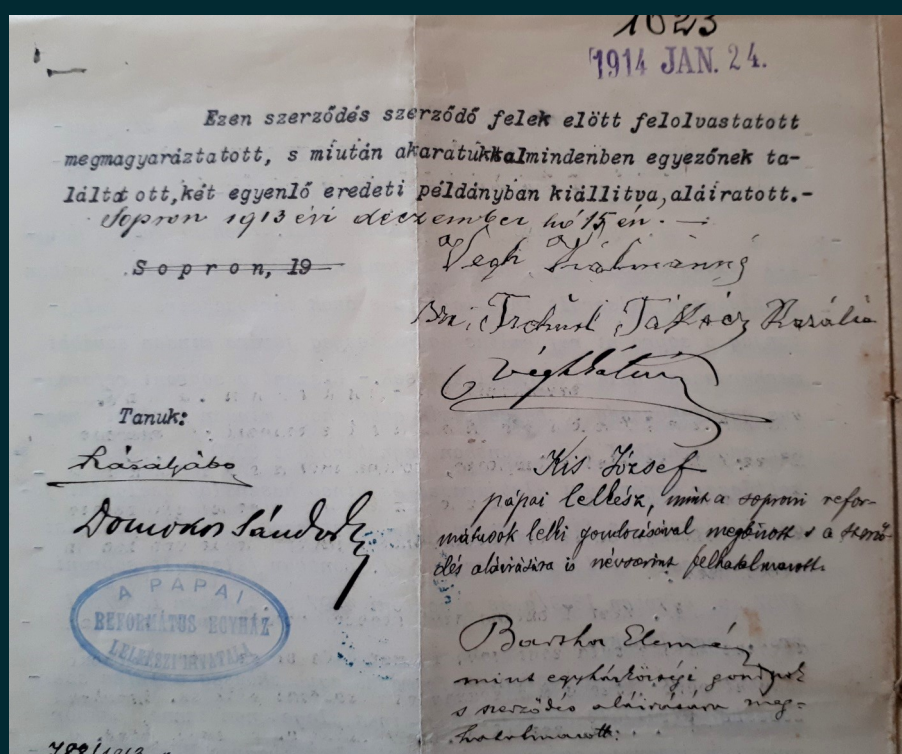 1623
1914 JAN. 24.
Ezen szerződés szerződő felek elött felolvastatott
megmagyaráztatott, s miután akaratukkalmindenben egyezőnek ta-
láltatott, két egyenlő eredeti példányban kiállitva, aláiratott.-
Sopron 1913 évi deczember hó 15 én. —
Sopron, 19
Végh Kálmánné
Takácz Rozália
Végh Kálmán
Tanuk:
Domokos Sándor
Kis József
pápai lelkész, mint a soproni refor-
mátusok lelki gondozásával megbizott s a szerző-
dés aláirására is névszerint felhatalmazott.
A PÁPAI
REFORMÁTUS EGYHÁZ
LELKÉSZI HIVATALA
Elemér
mint egyházközségi gondnok
s szerződés aláirására meg-
hatalmazott.